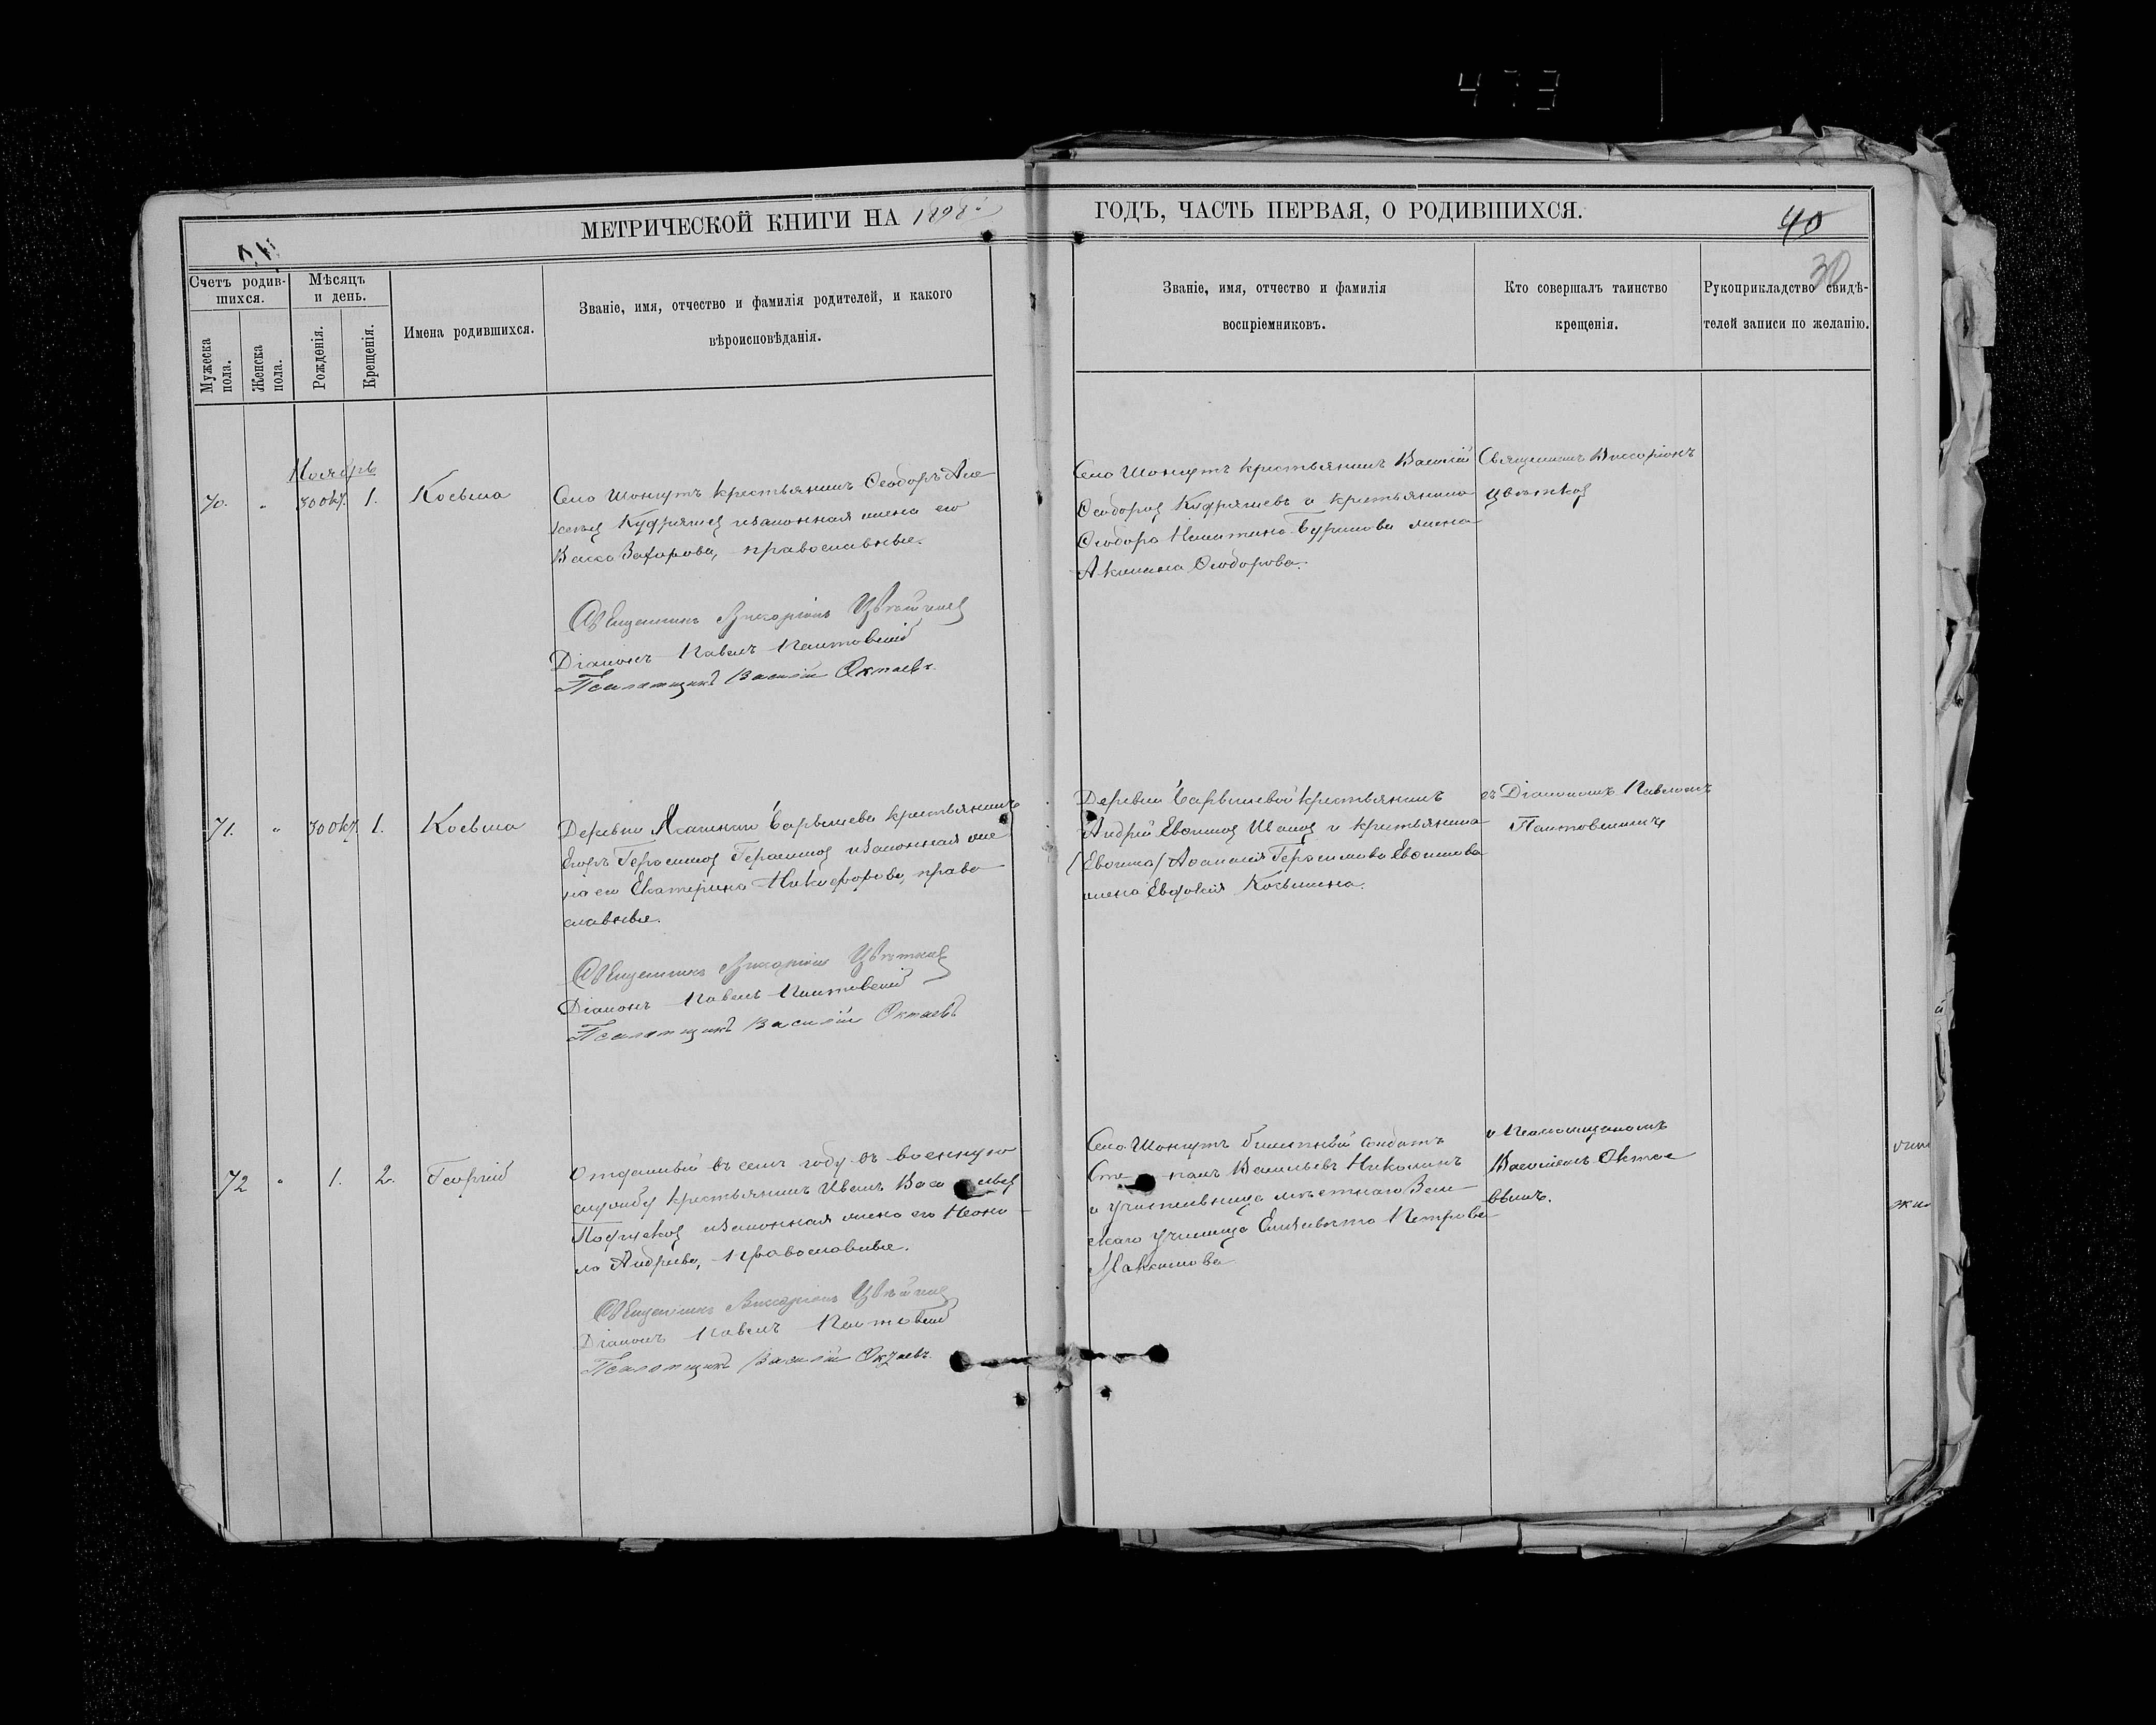 473
МЕТРИЧЕСКОЙ КНИГИ НА 1898й
ГОДЪ, ЧАСТЬ ПЕРВАЯ, О РОДИВШИХСЯ.
40
30
Счетъ родив-
шихся.
Мужеска
пола.
Женска
пола.
Мѣсяцъ
и день.
Рожденія.
Крещенія.
Имена родившихся.
Званіе, имя, отчество и фамилія родителей, и какого
вѣроисповѣданія.
Званіе, имя, отчество и фамилія
воспріемниковъ.
Кто совершалъ таинство
крещенія.
Рукоприкладство свидѣ-
телей записи по желанію.
Ноябрь
70.
"
30 окт.
1.
Косьма
Село Шонгутъ крестьянинъ Ѳеодоръ Але
ксѣевъ Кудряшев и законная жена его
Васса Захарова, православные.
Священникъ Виссаріонъ Цвѣтковъ
Діаконъ Павелъ Пантовскій
Псаломщикъ Василій Октаевъ.
Село Шонгутъ крестьянинъ Василій
Ѳеодоровъ Кудряшевъ и крестьянина
Ѳеодора Никитина Бурнаова жена
Акилина Ѳеодорова.
Священникъ Виссаріонъ
Цвѣтковъ
71.
"
30 окт.
1.
Косьма
Деревни Барышева крестьянинъ
Егоръ Герасимов Герасимов и законная же
на его Екатерина Никифорова, право
славные.
Священникъ Виссаріонъ Цвѣтковъ
Діаконъ Павелъ Пантовскій
Псаломщикъ Василій Октаевъ
Деревни Барышевой крестьянинъ
Андрей Евоимов Иванов и крестьянина
(Евоима) Аѳанасія Герасимова Евоимова
жена Евдокія Косьмина.
съ Діакономъ Павломъ
Пантовскимъ
72
"
1.
2.
Георгій
Отданный въ семъ году въ военную
службу крестьянинъ Иванъ Васильев
и законная жена его Неони
ла Андреева, православные.
Священникъ Виссаріонъ Цвѣтковъ
Діаконъ Павелъ Пантовскій
Псаломщикъ Василій Октаевъ.
Село Шонгутъ билетный солдатъ
Степанъ Васильевъ Николинъ
и учительница мѣстнаго Зем
скаго училища Елизавета Петрова
Максимова
и Псаломщикомъ
Василіемъ Октае
вымъ.